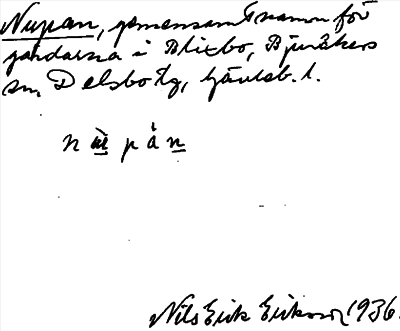 Nupan, gemensamt namn för
gårdarna i Blixbo, Bjuråkers
sn, Delsbo tg, Gävleb. l.
n ū̀ p å̀ n
Nils Erik Eriksson 1936.